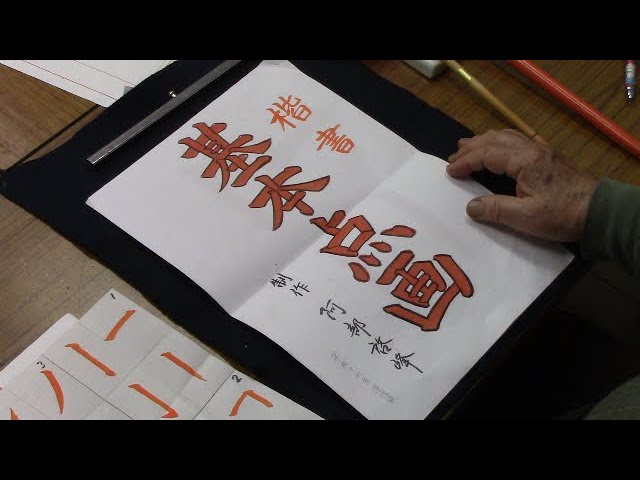 楷書
基本点画
制作 阿部啓峰
1
3
2